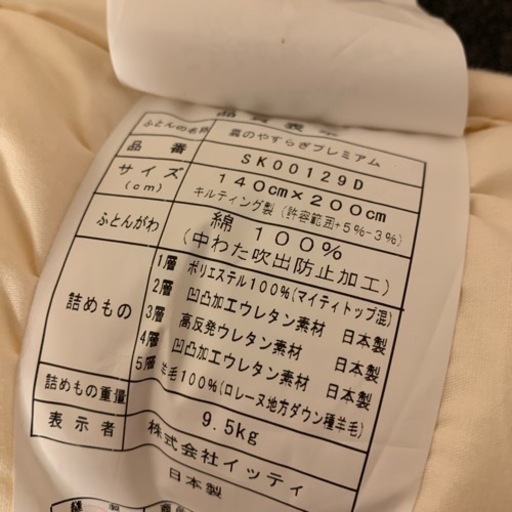 品質表示
ふとんの名称 雲のやすらぎプレミアム
品番 SK00129D
サイズ(cm) 140cm×200cm
キルティング製(許容範囲+5%-3%)
ふとんがわ 綿 100%
(中わた吹出防止加工)
詰めもの
1層 ポリエステル100%(マイティトップ混)
2層 凹凸加工ウレタン素材 日本製
3層 高反発ウレタン素材 日本製
4層 凹凸加工ウレタン素材 日本製
5層 羊毛100%(ロレーヌ地方ダウン種羊毛)
詰めもの重量 9.5kg
表示者 株式会社イッティ
日本製